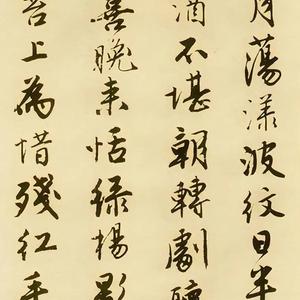 月蕩漾波紋日半
酒不堪朝轉劇
喜晚来恬綠楊影
苔上為惜殘紅手